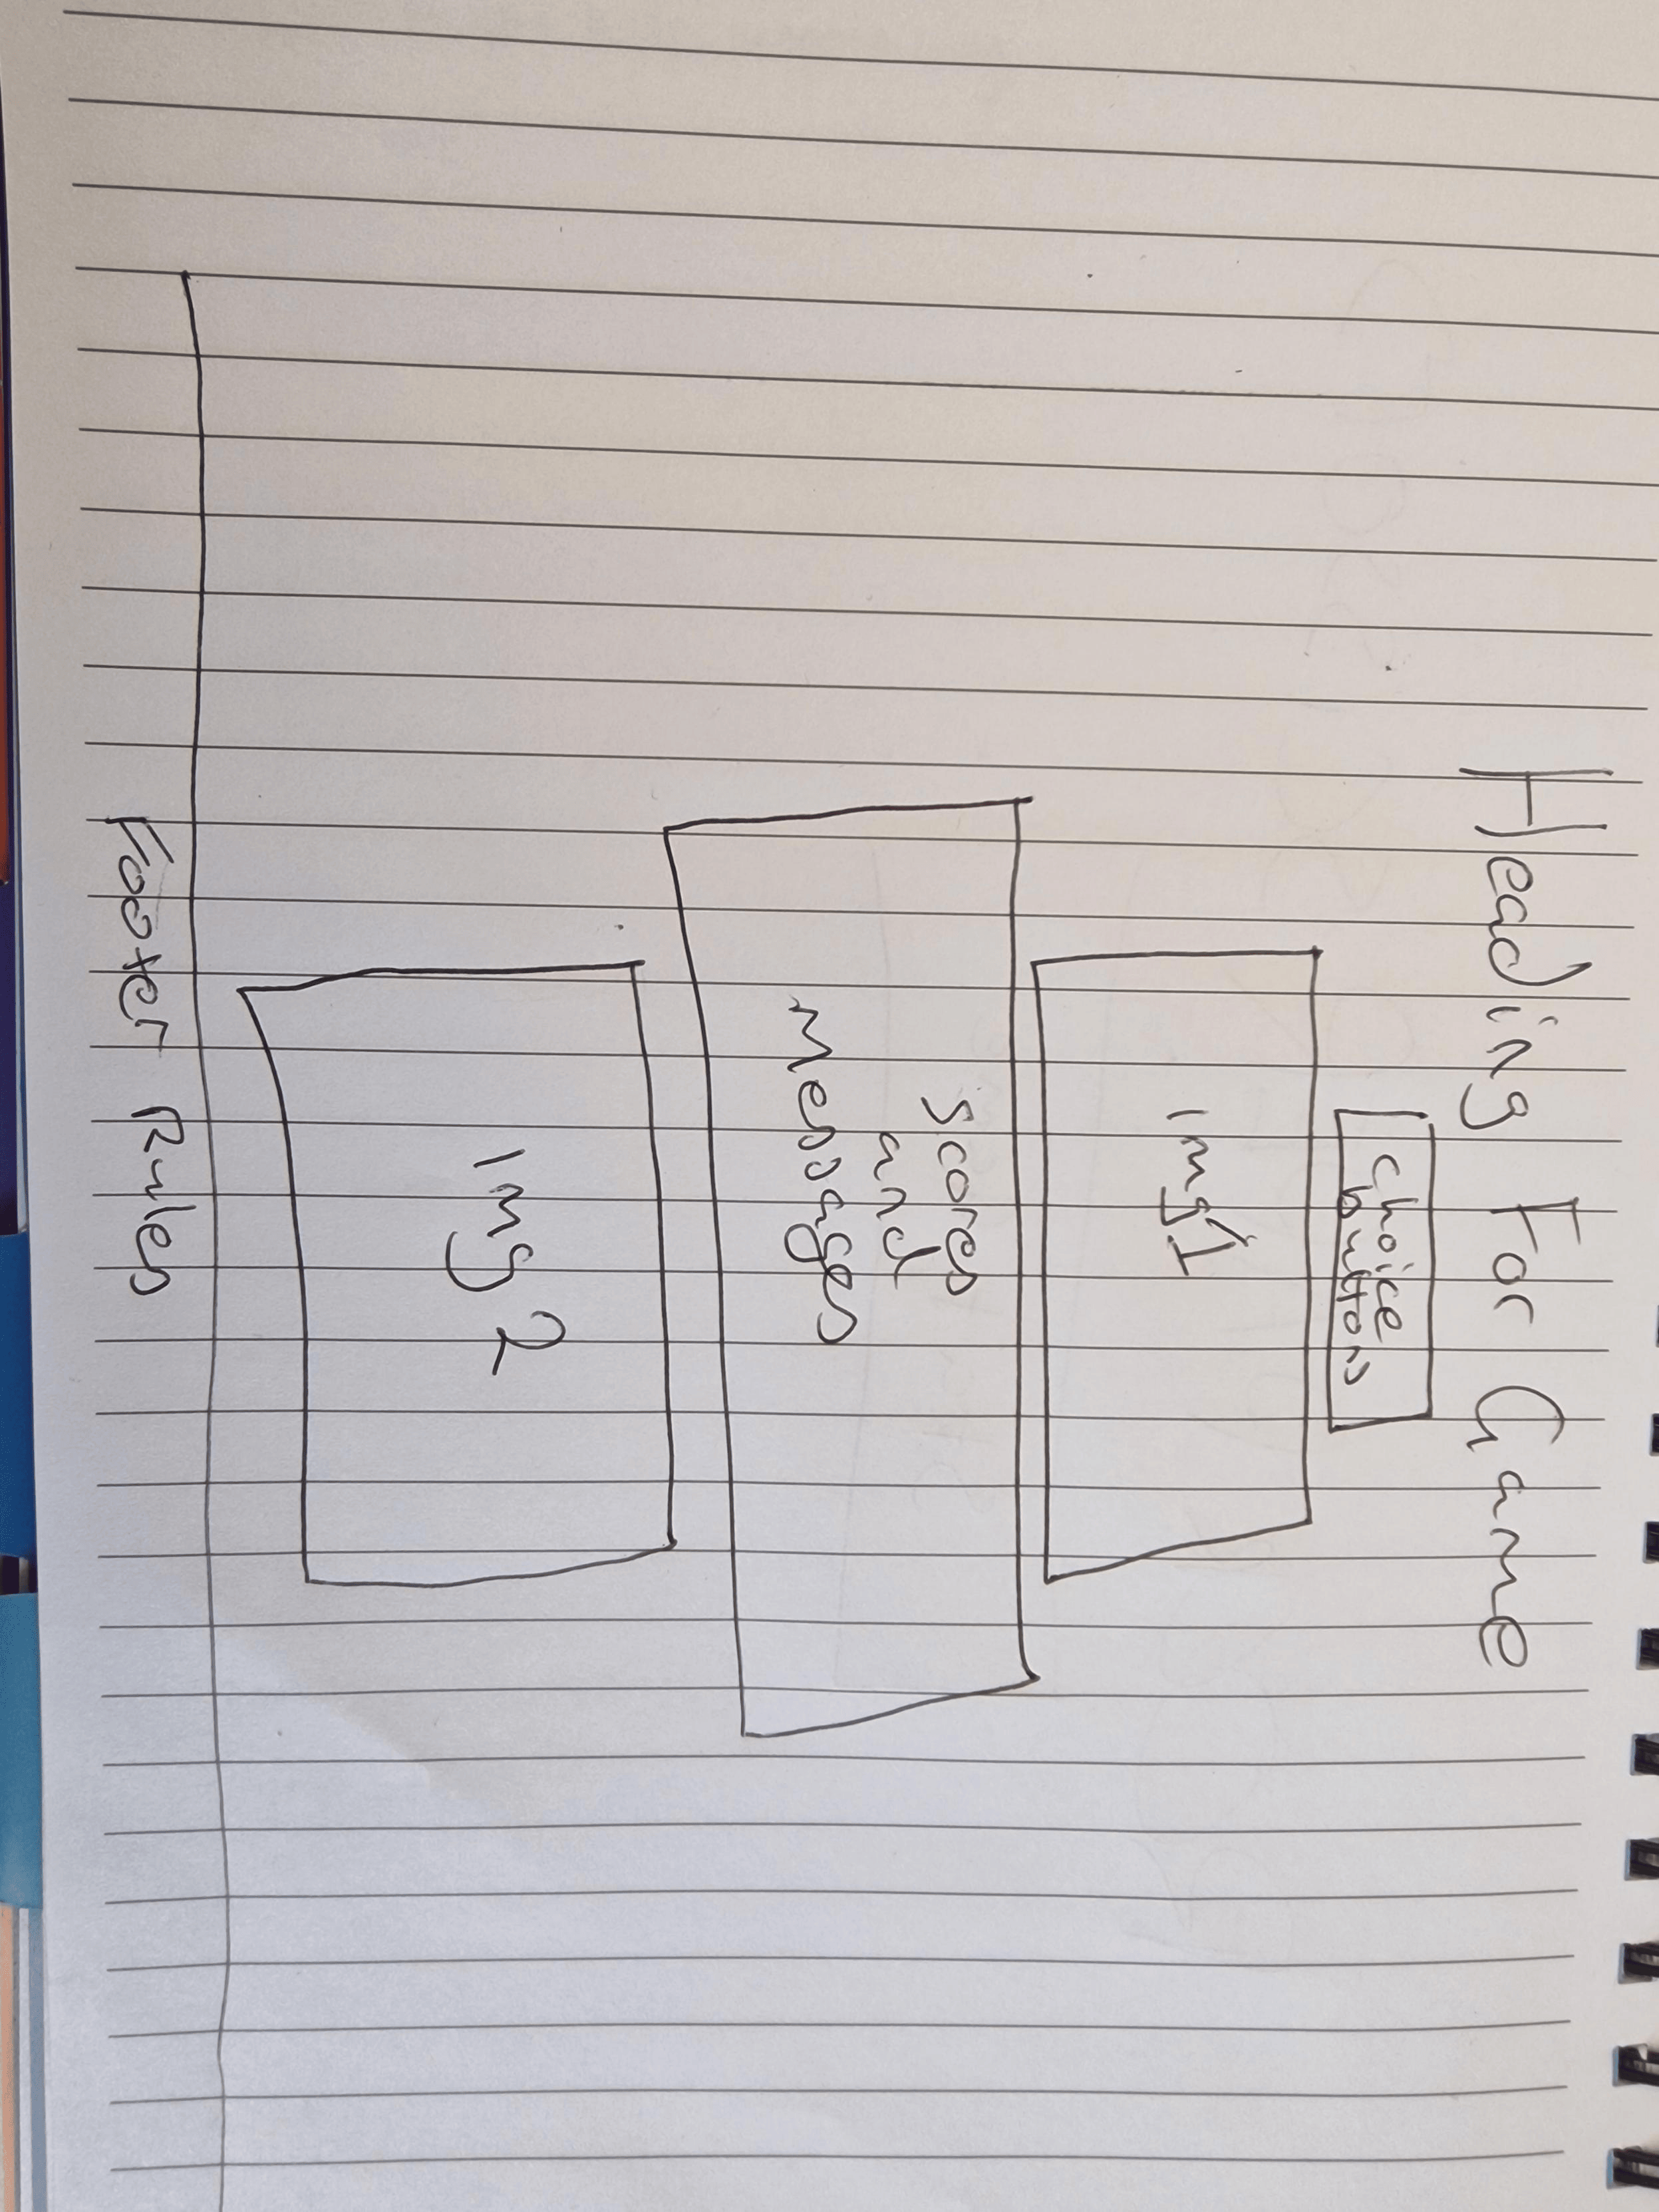 Heading For Game
Choice
buttons
img 1
Scores
and
Messages
img 2
Footer Rules